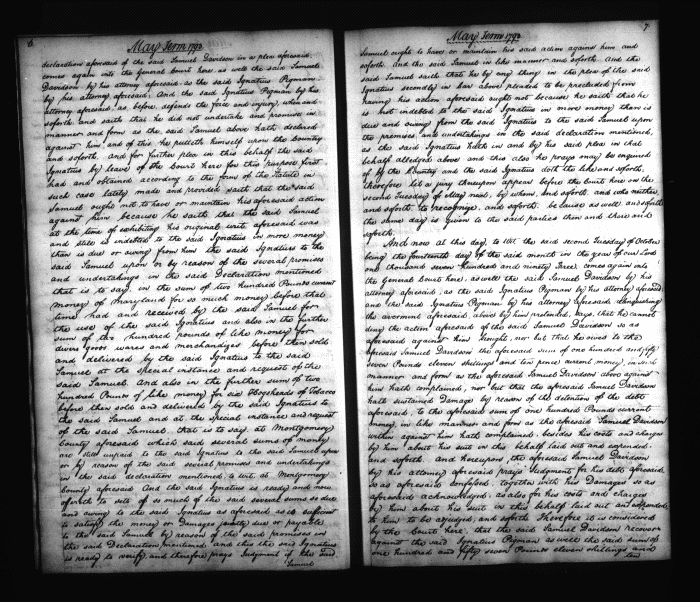 6
May Term 1792
declaration aforesaid of the said Samuel Davidson in a plea aforesaid
comes again into the General Court here as well the said Samuel
Davidson by his attorney aforesaid as the said Ignatius Pigman
by his attorney aforesaid. And the said Ignatius Pigman by his
attorney aforesaid, as before, defends the force and injury when and
soforth and saith that he did not undertake and promise in
manner and form as the said Samuel above hath declared
against him, and of this he putteth himself upon the Country
and soforth, and for further plea in this behalf the said
Ignatius by leave of the Court here for this purpose first
had and obtained according to the form of the Statute in
such case lately made and provided saith that the said
Samuel ought not to have or maintain his aforesaid action
against him because he saith that the said Samuel
at the time of exhibiting his original writ aforesaid was
and still is indebted to the said Ignatius in more money
than is due or owing from him the said Ignatius to the
said Samuel upon or by reason of the several promises
and undertakings in the said Declaration mentioned
that is to say, in the sum of two hundred Pounds current
money of Maryland for so much money before that
time had and received by the said Samuel for
the use of the said Ignatius and also in the further
sum of two hundred pounds of like money for
divers goods wares and merchandizes before then sold
and delivered by the said Ignatius to the said
Samuel at the special instance and request of the
said Samuel. And also in the further sum of two
hundred Pounds of like money for six Hogsheads of Tobacco
before then sold and delivered by the said Ignatius to
the said Samuel and at the special instance and request
of the said Samuel, that is to say, at Montgomery
County aforesaid which said several sums of money
are still unpaid to the said Ignatius to the said Samuel upon
or by reason of the said several promises and undertakings
in the said declaration mentioned, to wit at Montgomery
County aforesaid And the said Ignatius is ready and now
offereth to sett of so much of the said several sums so due
and owing to the said Ignatius as aforesaid as is sufficient
to satisfy the money or Damages justly due or payable
to the said Samuel by reason of the said promises in
the said Declaration mentioned and this the said Ignatius
is ready to verify and therefore prays Judgment if the said
Samuel
7
May Term 1792
Samuel ought to have or maintain his said action against him and
soforth. And the said Samuel in like manner and soforth. And the
said Samuel saith that he by any thing in the plea of the said
Ignatius secondly in bar above pleaded to be precluded from
having his action aforesaid ought not because he saith that he
is not indebted to the said Ignatius in more money than is
due and owing from the said Ignatius to the said Samuel upon
the premises and undertakings in the said declaration mentioned,
as the said Ignatius hath in and by his said plea in that
behalf alledged above and this also he prays may be enquired
of by the Country and the said Ignatius doth the like and soforth.
therefore let a jury thereupon appear before the Court here on the
second Tuesday of May next, by whom, and soforth and who neither
and soforth to recognize, and soforth because as well and soforth
the same day is given to the said parties then and there and
soforth.
And now at this day, to wit the said second Tuesday of October
being the fourteenth day of the said month in the year of our Lord
one thousand seven hundred and ninety three comes again into
the General Court here, as well the said Samuel Davidson by his
attorney aforesaid, as the said Ignatius Pigman by his attorney aforesaid
and the said Ignatius Pigman by his attorney aforesaid relinquishing
the averment aforesaid, above by him pretended, says, that he cannot
deny the action aforesaid of the said Samuel Davidson so as
aforesaid against him brought, nor but that he owes to the
aforesaid Samuel Davidson the aforesaid sum of one hundred and fifty
seven Pounds eleven shillings and ten pence current money, in such
manner and form as the aforesaid Samuel Davidson above against
him hath complained, nor but that the aforesaid Samuel Davidson
hath sustained Damage by reason of the detention of the debt
aforesaid, to the aforesaid sum of one hundred Pounds current
money, in like manner and form as the aforesaid Samuel Davidson
within against him hath complained, besides his costs and charges
by him about his suit in this behalf laid out and expended
and soforth. and hereupon, the aforesaid Samuel Davidson
by his attorney aforesaid prays Judgment for his debt aforesaid
so as aforesaid confessed, together with his Damages so as
aforesaid acknowledged, as also for his costs and charges
by him about his suit in this behalf laid out and expended
to him to be adjudged, and soforth Therefore it is considered
by the Court here, that the said Samuel Davidson recover
against the said Ignatius Pigman as well the said sum of
one hundred and fifty seven Pounds eleven shillings and
ten